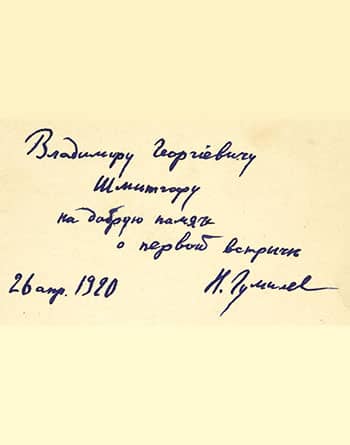 Владимиру Георгіевичу
Шмитгору
на добрую память
о первой встрѣчи
26 апр. 1920 Н. Гумилев